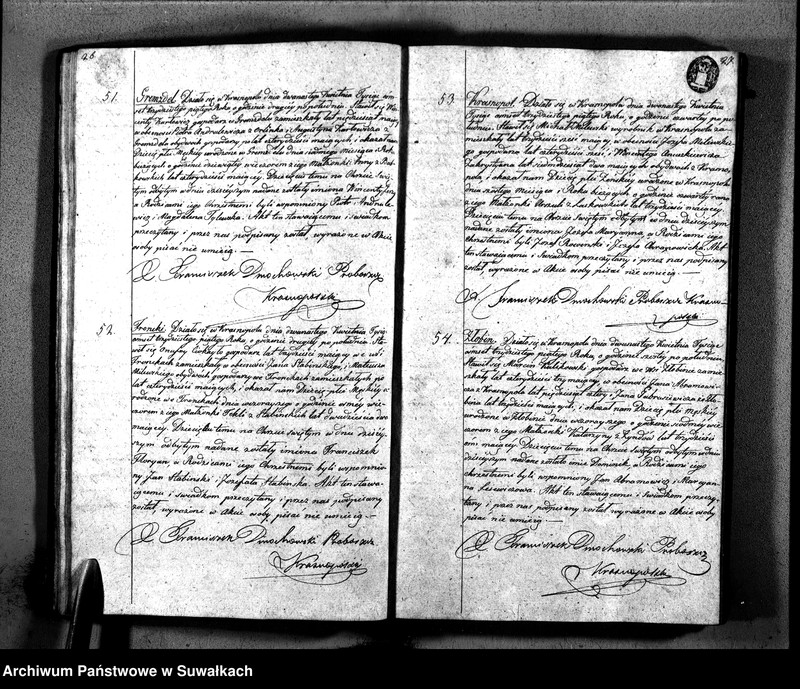 26
51.
Gremzdel. Działo się w Krasnopolu dnia dwunastego Kwietnia Tysiąc
osmset trzydziestego piątego Roku o godzinie drugiey po południu. Stawił się
gospodarz w Gremzdelu zamieszkały lat mający
w obecności Piotra Andrulewicza z i Augustyna Karłowicza z
Gremzdela obydwoch gospodarzy po lat czterdzieści maiących, i okazał nam
Dziecię płci Męskiey urodzone w Gremzdelu dnia Miesiąca i Roku
bieżących o godzinie wieczorem z iego Małżonki Anny z
lat czterdzieści maiącey. Dziecięciu temu na Chrzcie
Świętym odbytym w dniu dzisieyszym nadane zostały imiona Wincenty
a Rodzicami iego Chrzestnemi byli wspomniony Piotr
i Magdalena. Akt ten stawaiącemu i świadkom
przeczytany i przez nas podpisany został wyrażone w Akcie
osoby pisać nie umieią.—
X Franciszek Dmochowski Proboszcz
Krasnopolski
52.
Froncki. Działo się w Krasnopolu dnia dwunastego Kwietnia Tysiąc
osmset trzydziestego piątego Roku o godzinie drugiey po południu.
Stawił się Onufry gospodarz lat trzydzieści maiący we wsi
Fronckach zamieszkały w obecności Jana Stabińskiego, i Mateusza
Milewskiego obydwoch gospodarzy w Fronckach zamieszkałych po
lat czterdzieści maiących, i okazał nam Dziecię płci Męskiey
urodzone w Fronckach dnia wczorayszego o godzinie osmey
wieczorem z iego Małżonki Tekli z Stabińskich lat dwadzieścia dwa
maiącey. Dziecięciu temu na Chrzcie świętym w dniu
dzisieyszym odbytym nadane zostały imiona Franciszek
Floryan a Rodzicami iego Chrzestnemi byli wspomniony
Jan Stabiński i Józefata Stabińska. Akt ten
stawaiącemu i świadkom przeczytany i przez nas podpisany
został, wyrażone w Akcie osoby pisać nie umieią.—
X Franciszek Dmochowski Proboszcz
Krasnopolski
27
53.
Krasnopol. Działo się w Krasnopolu dnia dwunastego Kwietnia
Tysiąc osmset trzydziestego piątego Roku, o godzinie czwartey po
południu. Stawił się Michał Milewski wyrobnik w Krasnopolu
zamieszkały lat trzydzieści maiący w obecności Józefa
gospodarza lat czterdzieści i Wincentego
Zakrystyana lat siedmdziesiąt dwa maiących obydwoch z
Krasnopola, i okazał nam Dziecię płci Żeńskiey urodzone w Krasnopolu
dnia Miesiąca i Roku bieżących o godzinie czwartey rano
z iego Małżonki Urszuli z lat trzydzieści maiącey.
Dziecięciu temu na Chrzcie Świętym odbytym w dniu dzisieyszym
nadane zostały imiona Józefa Maryanna a Rodzicami iego
chrzestnemi byli Józef i Józefa. Akt
ten stawaiącemu i Świadkom przeczytany i przez nas podpisany
został, wyrażone w Akcie osoby pisać nie umieią.—
X Franciszek Dmochowski Proboszcz
Krasnopolski
54.
Żłobin. Działo się w Krasnopolu dnia dwunastego Kwietnia Tysiąc
osmset trzydziestego piątego Roku, o godzinie szóstey po południu.
Stawił się Marcin gospodarz we Wsi Żłobinie
zamieszkały lat czterdzieści trzy maiący, w obecności Jana
z Krasnopola lat pięćdziesiąt i Jana z
lat trzydzieści maiących, i okazał nam Dziecię płci Męskiey
urodzone w Żłobinie dnia wczorayszego o godzinie siódmey
wieczorem z iego Małżonki Katarzyny z lat trzydzieści
maiącey. Dziecięciu temu na Chrzcie świętym odbytym w dniu
dzisieyszym nadane zostało imie Dominik, a Rodzicami iego
chrzestnemi byli wspomniony Jan Abramowicz i Maryanna
. Akt ten stawaiącemu i świadkom
przeczytany i przez nas podpisany został wyrażone w Akcie osoby
pisać nie umieią.—
X Franciszek Dmochowski Proboszcz
Krasnopolski
Archiwum Państwowe w Suwałkach